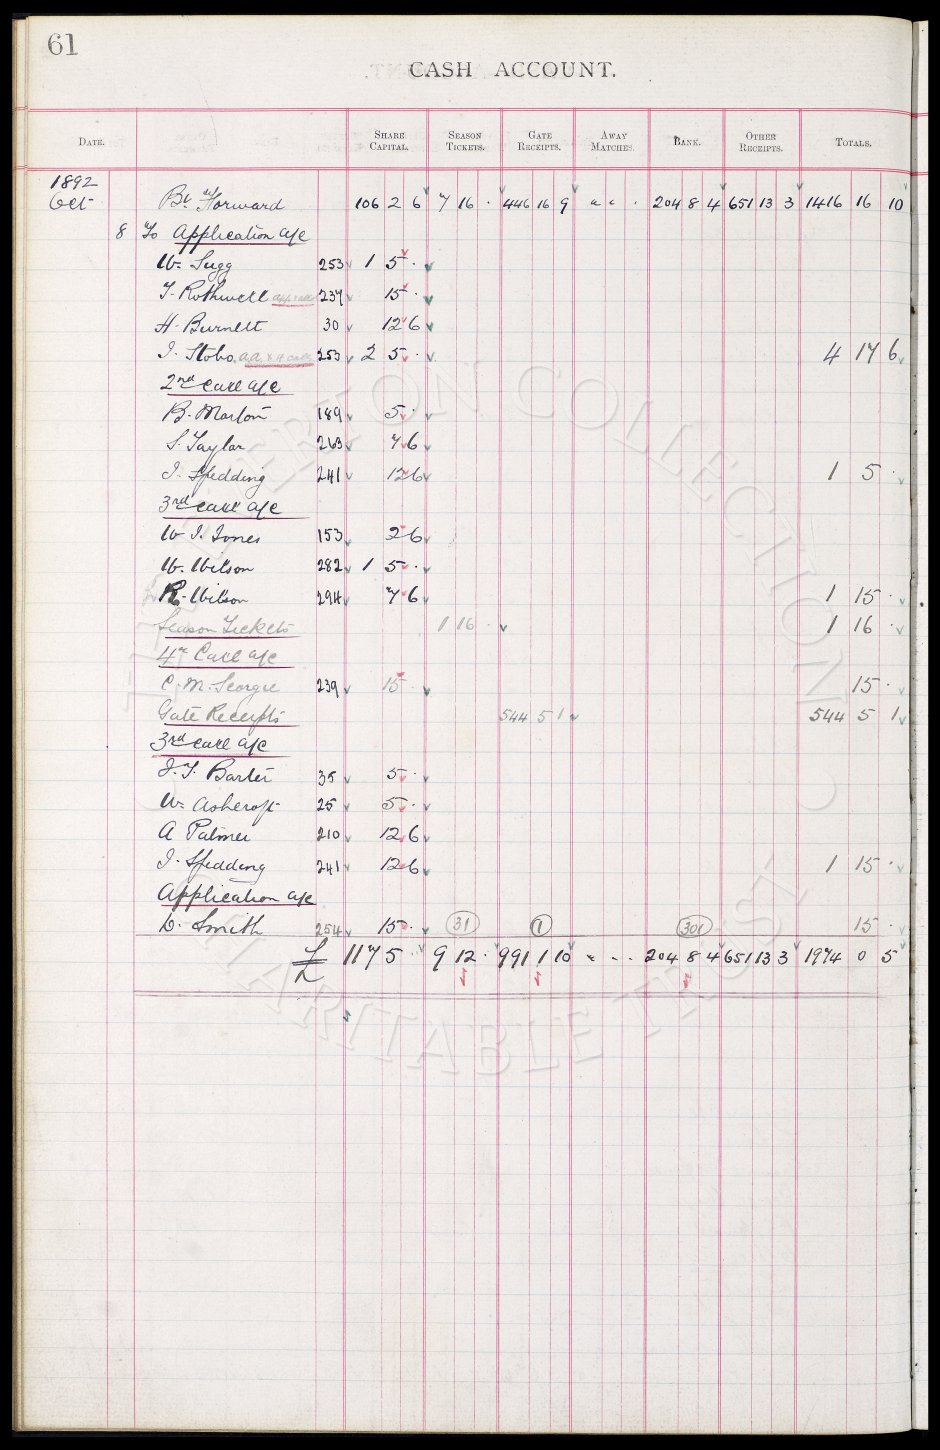 61
CASH ACCOUNT.
DATE. SHARE CAPITAL. SEASON TICKETS. GATE RECEIPTS. AWAY MATCHES. BANK. OTHER RECEIPTS. TOTALS.
1892
Oct Bt Forward 106 2 6 7 16 . 446 16 9 " " . 204 8 4 651 13 3 1416 16 10
8 To Application a/c
W. Sugg 253 1 5 .
T. Rothwell 237 15 .
H. Burnett 30 12 6
J. Stobo 253 2 5 . 4 17 6
2nd Call a/c
B. Marton 189 5 .
S. Taylor 263 7 6
J. Spedding 241 12 6 1 5 .
3rd Call a/c
W J. Jones 153 2 6
W. Wilson 282 1 5 .
R. Wilson 294 7 6 1 15 .
Season Tickets 1 16 . 1 16 .
4th Call a/c
C. M. George 239 15 . 15 .
Gate Receipts 544 5 1 544 5 1
3rd Call a/c
J. T. Barter 35 5 .
Wm Ashcroft 25 5 .
A Palmer 210 12 6
J. Spedding 241 12 6 1 15 .
Application a/c
D. Smith 254 15 . 31 1 301 15 .
117 5 . 9 12 . 991 1 10 " . . 204 8 4 651 13 3 1974 0 5
EVERTON COLLECTION
CHARITABLE TRUST